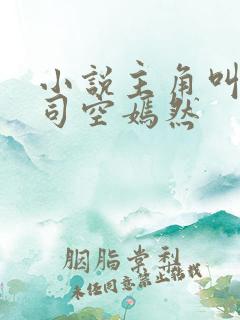 小说主角叫
司空嫣然
胭脂棠利
未经同意禁止转载